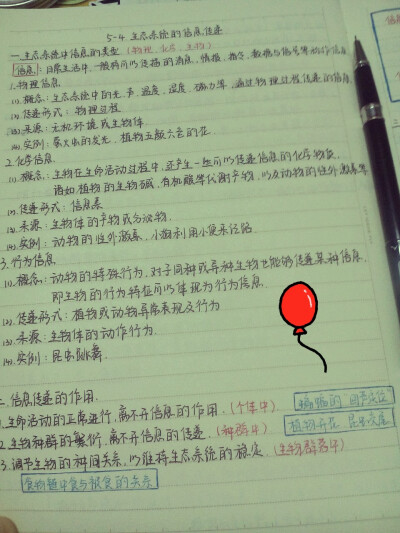 5-4 生态系统的信息传递
一. 生态系统中信息的类型 (物理、化学、生物)
信息: 日常生活中,一般将可以传播的消息、情报、指令、数据与信号等称作信息
1. 物理信息
(1). 概念: 生态系统中的光、声、温度、湿度、磁力等,通过物理过程传递的信息.
(2). 传递形式: 物理过程
(3). 来源: 无机环境或生物体
(4). 实例: 萤火虫的发光、植物五颜六色的花.
2. 化学信息
(1). 概念: 生物在生命活动过程中,还产生一些可以传递信息的化学物质.
诸如植物的生物碱,有机酸等代谢产物,以及动物的性外激素等
(2). 传递形式: 信息素
(3). 来源: 生物体的产物或分泌物.
(4). 实例: 动物的性外激素,小狗利用小便来记路.
3. 行为信息
(1). 概念: 动物的特殊行为,对于同种或异种生物也能够传递某种信息,
即生物的行为特征可以体现为行为信息.
(2). 传递形式: 植物或动物异常表现及行为
(3). 来源: 生物体的动作行为.
(4). 实例: 昆虫跳舞.
二. 信息传递的作用.
1. 生命活动的正常进行,离不开信息的作用. (个体中) 蝙蝠的"回声定位"
2. 生物种群的繁衍,离不开信息的传递. (种群中) 植物开花 昆虫
3. 调节生物的种间关系,以维持生态系统的稳定. (生物群落中)
食物链中食与被食的关系